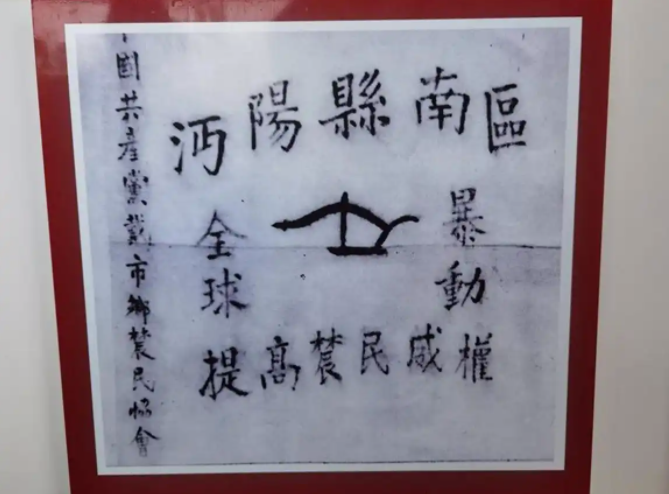 沔陽縣南區
暴動
全球
提高農民威權
國共產黨戴市鄉農民協會